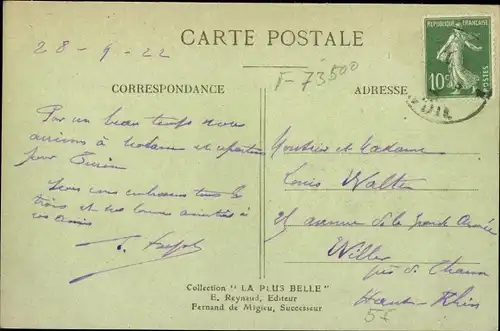 28-9-22
CARTE POSTALE
F-73500
RÉPUBLIQUE FRANÇAISE
10c
POSTES
CORRESPONDANCE
ADRESSE
Par un beau temps nous
arrivons à et repartons
pour
Nous vous embrassons tous les
trois et nos bonnes amitiés à
vos amis
Monsieur et Madame
Louis Walter
25 avenue de la Grande Armée
Willer
près de Thann
Haut-Rhin
Collection "LA PLUS BELLE"
E. Reynaud, Editeur
Fernand de Migieu, Successeur